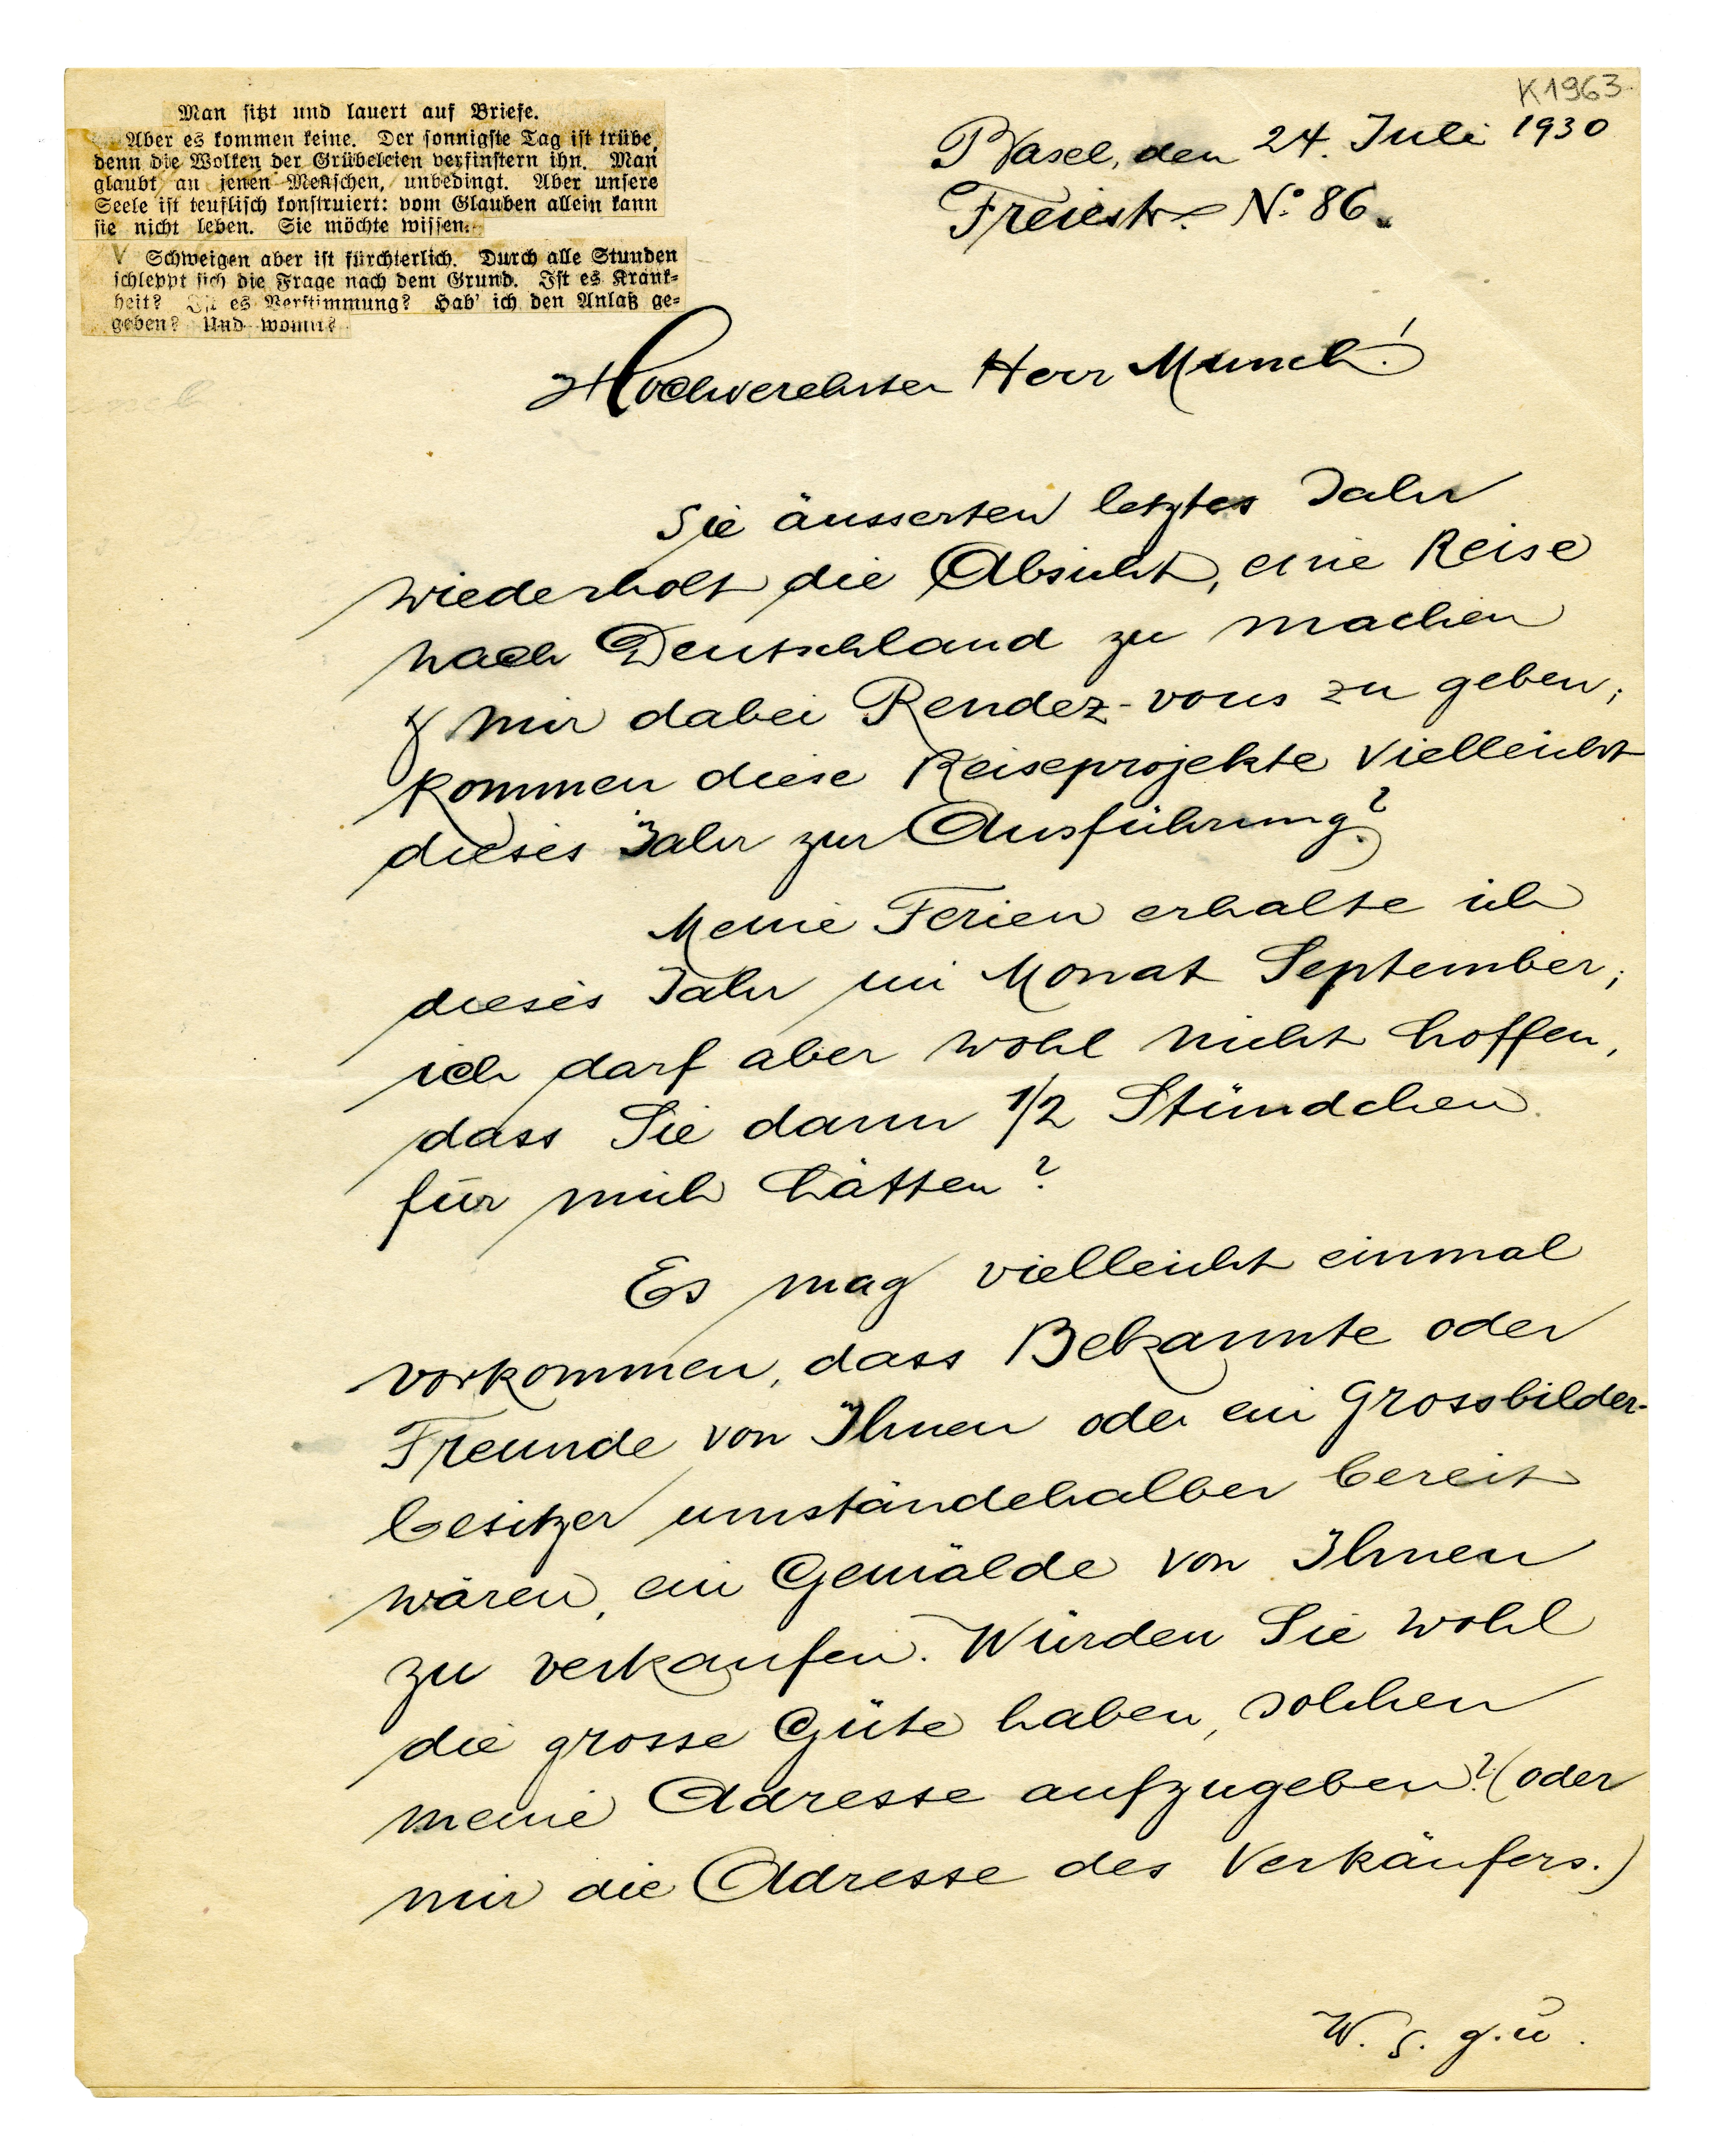 K1963
Man sitzt und lauert auf Briefe.
Aber es kommen keine. Der sonnigste Tag ist trübe,
denn die Wolken der Grübeleien verfinstern ihn. Man
glaubt an jenen Menschen, unbedingt. Aber unsere
Seele ist teuflisch konstruiert: vom Glauben allein kann
sie nicht leben. Sie möchte wissen.
Schweigen aber ist fürchterlich. Durch alle Stunden
schleppt sich die Frage nach dem Grund. Ist es Krank-
heit? Ist es Verstimmung? Hab' ich den Anlaß ge-
geben? Und womit?
Basel, den 24. Juli 1930
Freiestr. No. 86.
Hochverehrter Herr Munch!
Sie äusserten letztes Jahr
wiederholt die Absicht, eine Reise
nach Deutschland zu machen
& mir dabei Rendez-vous zu geben;
kommen diese Reiseprojekte vielleicht
dieses Jahr zur Ausführung?
Meine Ferien erhalte ich
dieses Jahr im Monat September;
ich darf aber wohl nicht hoffen,
dass Sie dann 1/2 Stündchen
für mich hätten?
Es mag vielleicht einmal
vorkommen, dass Bekannte oder
Freunde von Ihnen oder ein Grossbilder-
besitzer umständehalber bereit
wären, ein Gemälde von Ihnen
zu verkaufen. Würden Sie wohl
die grosse Güte haben, solchen
meine Adresse aufzugeben? (oder
mir die Adresse des Verkäufers.)
W. S. g. ü.